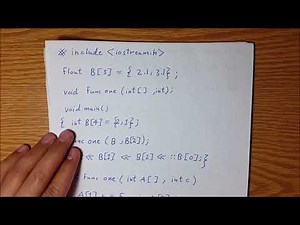 # include <iostream.h>
float B[3] = { 2.1, 3.1 } ;
void func one (int[] , int);
void main()
{ int B[4] = {2,3}
func one ( B , B[2]);
≪ B[1] ≪ B[2] ≪ ::B[0];}
func one ( int A[ ] , int c)